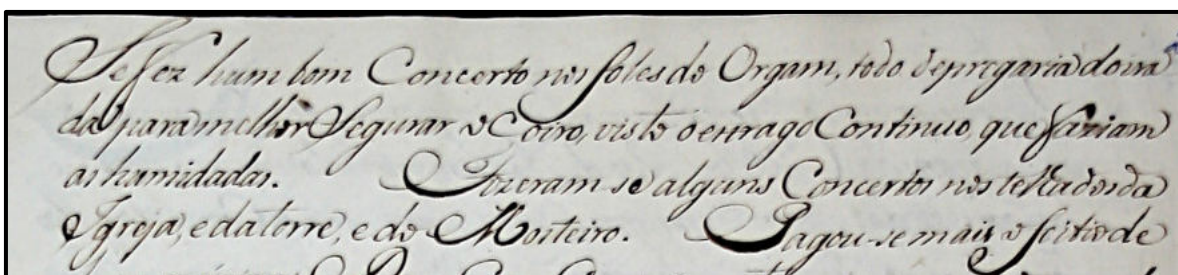 Se fez hum bom Concerto nos foles do Orgam, todo de pregaria doira
da para melhor Segurar o Coiro, visto o estrago Continuo, que faziam
as humidadas. Fizeram-se alguns Concertos nos telhados da
Igreja, e da torre, e do Mosteiro. Pagou-se mais o feitio de